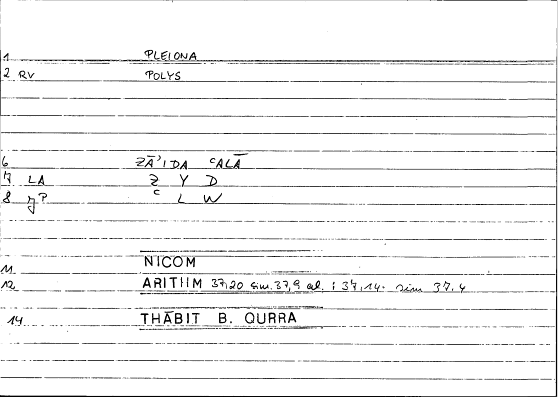 1 PLEIONA
2 RV POLYS
6 ZĀʾIDA ʿALĀ
7 LA Z Y D
8 ʿ L W
11 NICOM
12 ARITIIM 37,20 sim. 37,9 al. : 37,14. sim 37.4
14 THĀBIT B. QURRA